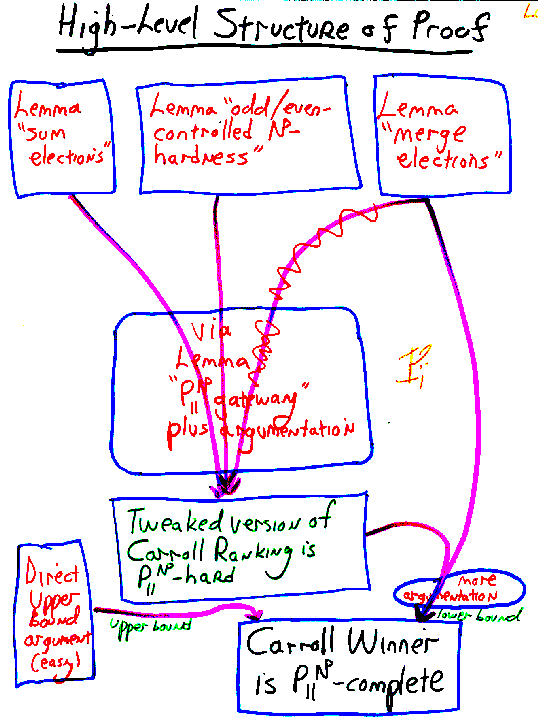 High-Level Structure of Proof
Lemma
"sum
elections"
Lemma "odd/even-
controlled NP-
hardness"
Lemma
"merge
elections"
via
Lemma
"P||^NP gateway"
plus argumentation
Tweaked version of
Carroll Ranking is
P||^NP-hard
Direct
Upper
bound
argument
(easy)
upper bound
more
argumentation
lower bound
Carroll Winner
is P||^NP-complete